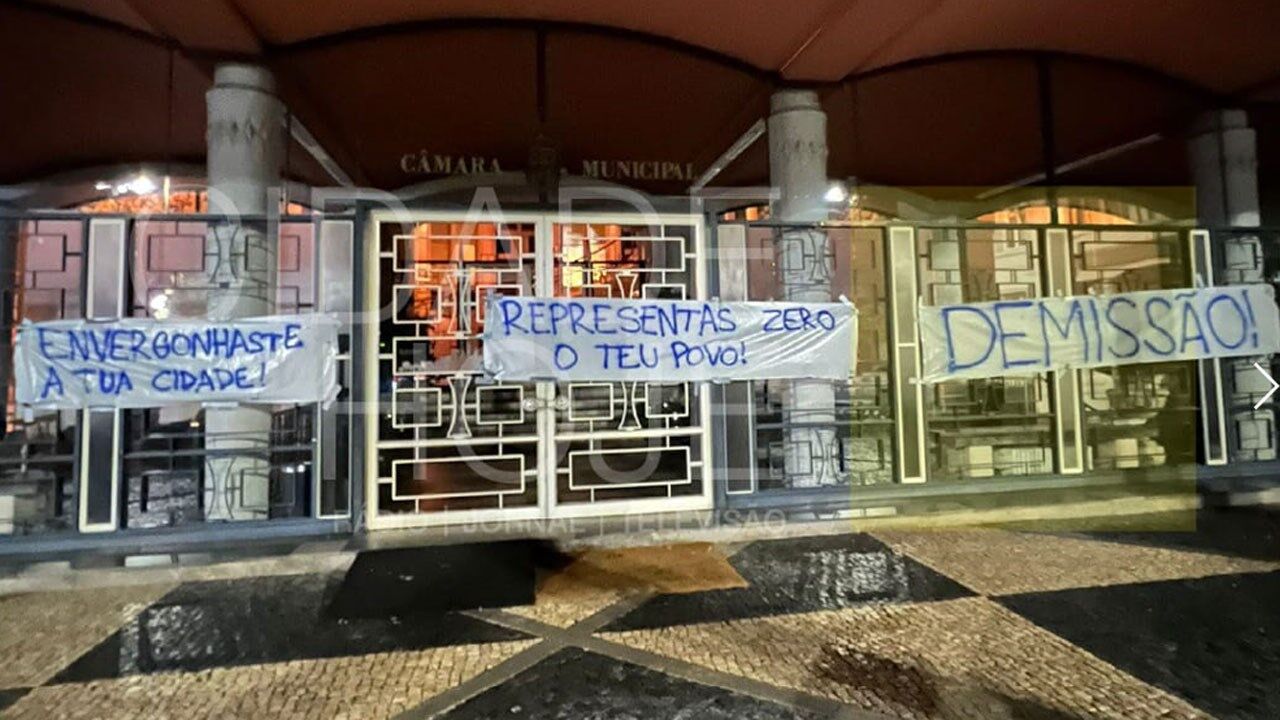 CÂMARA MUNICIPAL
CIDADE
HOJE
RÁDIO | JORNAL | TELEVISÃO
ENVERGONHASTE
A TUA CIDADE!
REPRESENTAS ZERO
O TEU POVO!
DEMISSÃO!